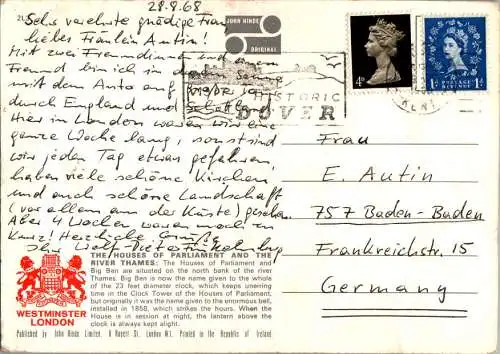 28.8.68
Sehr verehrte gnädige Frau
liebes Fräulein Autin!
Mit zwei Freundinnen und einem
Freund bin ich in
mit dem Auto auf
durch England und Schottland
Hier in London waren wir eine
ganze Woche lang, sonst sind
wir jeden Tag etwas gefahren,
haben viele schöne Kirchen
und auch schöne Landschaft
(vor allem an der Küste) gesehen.
Aber 4 Wochen waren noch zu
Kurz! Herzliche Grüße
Ihr Wolf-Dieter
JOHN HINDE
ORIGINAL
HISTORIC
DOVER
4D
1D POSTAGE REVENUE 1D
Frau
E. Autin
757 Baden-Baden
Frankreichstr. 15
Germany
THE HOUSES OF PARLIAMENT AND THE
RIVER THAMES: The Houses of Parliament and
Big Ben are situated on the north bank of the river
Thames. Big Ben is now the name given to the whole
of the 23 feet diameter clock, which keeps unerring
time in the Clock Tower of the Houses of Parliament,
but originally it was the name given to the enormous bell,
installed in 1858, which strikes the hours. When the
House is in session at night, the lantern above the
clock is always kept alight.
WESTMINSTER
LONDON
Published by John Hinde Limited, 6 Rupert St. London W.1. Printed in the Republic of Ireland